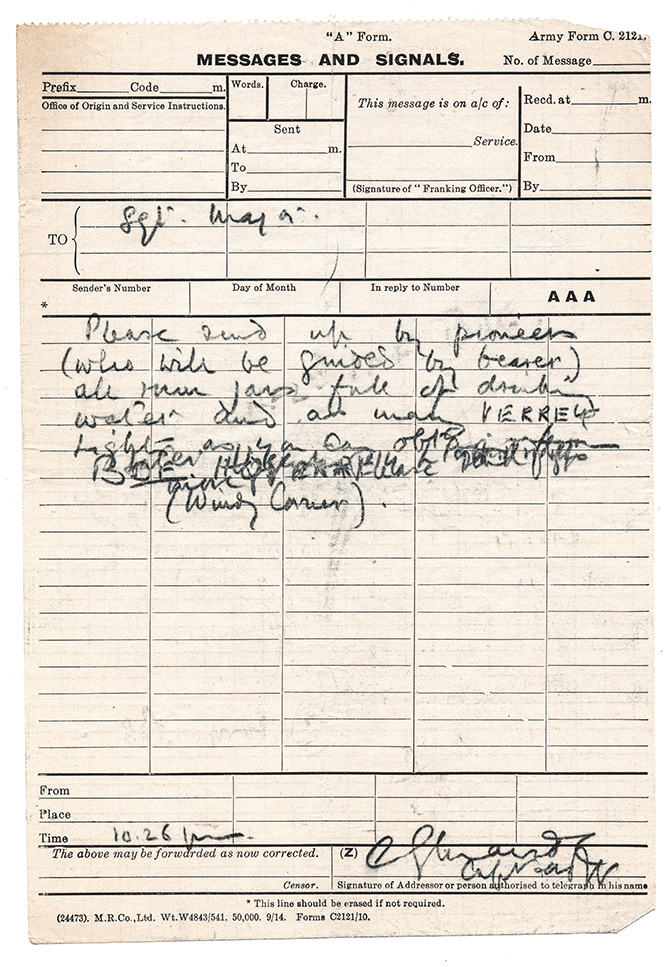 "A" Form.
Army Form C. 2121.
MESSAGES AND SIGNALS.
No. of Message
Prefix Code m.
Words. Charge.
This message is on a/c of:
Recd. at m.
Office of Origin and Service Instructions.
Sent
Service.
Date
At m.
To
From
By
(Signature of "Franking Officer.")
By
TO
Sgt. Major.
Sender's Number
Day of Month
In reply to Number
*
AAA
Please send up by pioneers
(who will be guided by bearer)
all rum jars full of drinking
water and as many VERREY
lights as you can
(Windy Corner).
From
Place
Time 10.26 pm.
The above may be forwarded as now corrected.
(Z)
Capt
Censor.
Signature of Addressor or person authorised to telegraph in his name
* This line should be erased if not required.
(24473). M.R.Co.,Ltd. Wt.W4843/541. 50,000. 9/14. Forms C2121/10.